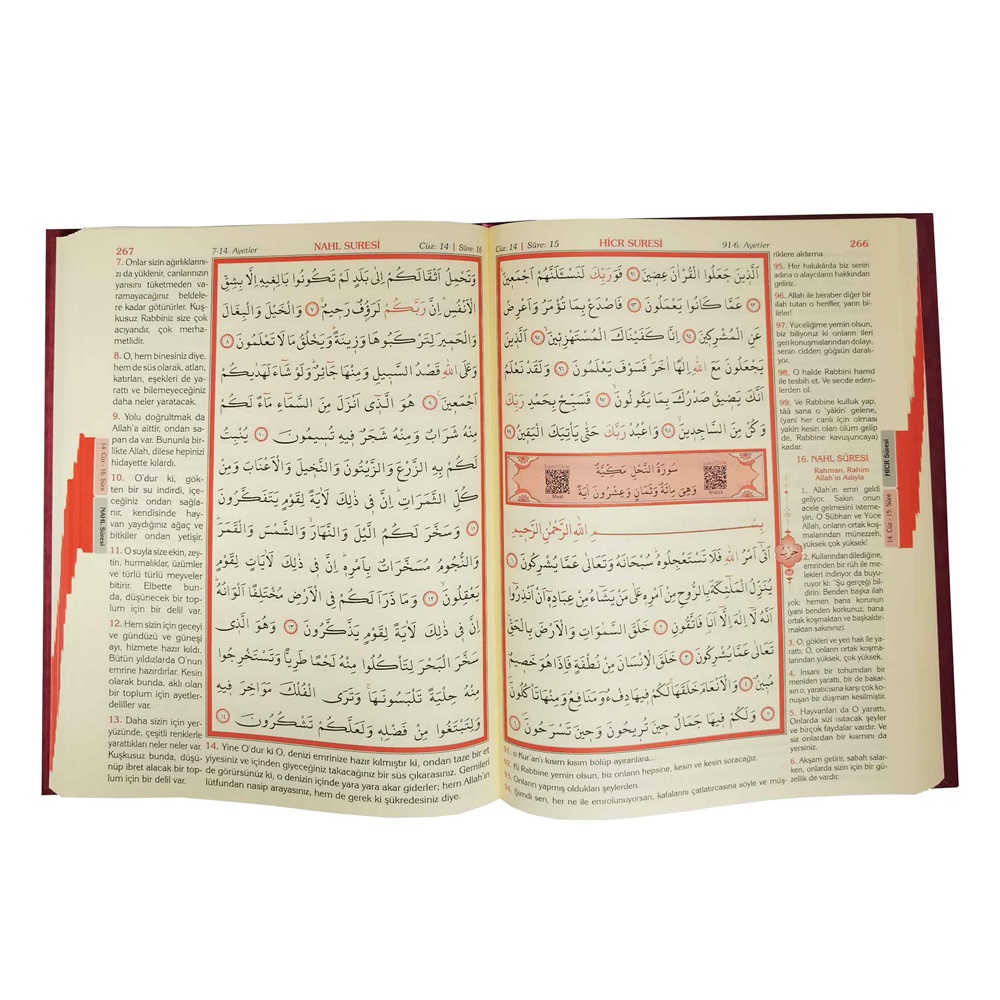 Cüz: 14 | Sûre: 15 HİCR SURESİ 91-6. Ayetler 266
اَلَّذ۪ينَ جَعَلُوا الْقُرْاٰنَ عِض۪ينَ ﴿٩١﴾ فَوَرَبِّكَ لَنَسْـَٔلَنَّهُمْ اَجْمَع۪ينَۙ
﴿٩٢﴾ عَمَّا كَانُوا يَعْمَلُونَ ﴿٩٣﴾ فَاصْدَعْ بِمَا تُؤْمَرُ وَاَعْرِضْ
عَنِ الْمُشْرِك۪ينَ ﴿٩٤﴾ اِنَّا كَفَيْنَاكَ الْمُسْتَهْزِء۪ينَۙ ﴿٩٥﴾ اَلَّذ۪ينَ
يَجْعَلُونَ مَعَ اللّٰهِ اِلٰهًا اٰخَرَۚ فَسَوْفَ يَعْلَمُونَ ﴿٩٦﴾ وَلَقَدْ نَعْلَمُ
اَنَّكَ يَض۪يقُ صَدْرُكَ بِمَا يَقُولُونَۙ ﴿٩٧﴾ فَسَبِّحْ بِحَمْدِ رَبِّكَ
وَكُنْ مِنَ السَّاجِد۪ينَۙ ﴿٩٨﴾ وَاعْبُدْ رَبَّكَ حَتّٰى يَأْتِيَكَ الْيَق۪ينُ ﴿٩٩﴾
سُورَةُ النَّحْلِ مَكِّيَّةٌ
وَهِيَ مِائَةٌ وَثَمَانٍ وَعِشْرُونَ اٰيَةً
بِسْمِ اللّٰهِ الرَّحْمٰنِ الرَّح۪يمِ
اَتٰٓى اَمْرُ اللّٰهِ فَلَا تَسْتَعْجِلُوهُۜ سُبْحَانَهُ وَتَعَالٰى عَمَّا يُشْرِكُونَ ﴿١﴾
يُنَزِّلُ الْمَلٰٓئِكَةَ بِالرُّوحِ مِنْ اَمْرِه۪ عَلٰى مَنْ يَشَٓاءُ مِنْ عِبَادِه۪ٓ اَنْ اَنْذِرُٓوا
اَنَّهُ لَٓا اِلٰهَ اِلَّٓا اَنَا۬ فَاتَّقُونِ ﴿٢﴾ خَلَقَ السَّمٰوَاتِ وَالْاَرْضَ بِالْحَقِّۜ
تَعَالٰى عَمَّا يُشْرِكُونَ ﴿٣﴾ خَلَقَ الْاِنْسَانَ مِنْ نُطْفَةٍ فَاِذَا هُوَ خَص۪يمٌ
مُب۪ينٌ ﴿٤﴾ وَالْاَنْعَامَ خَلَقَهَاۚ لَكُمْ ف۪يهَا دِفْءٌ وَمَنَافِعُ وَمِنْهَا تَأْكُلُونَ
﴿٥﴾ وَلَكُمْ ف۪يهَا جَمَالٌ ح۪ينَ تُر۪يحُونَ وَح۪ينَ تَسْرَحُونَ ﴿٦﴾
حزب
riklere aldırma.
95. Her halukârda biz senin
adına o alaycıların hakkından
geliriz.
96. Allah ile beraber diğer bir
ilah tutan o herifler, yarın bilir-
lirler!
97. Yüceliğime yemin olsun,
biz biliyoruz ki onların ileri
geri konuşmalarından dolayı,
senin cidden göğsün daralı-
yor.
98. O halde Rabbini hamd
ile tesbih et. Ve secde eden-
lerden ol.
99. Ve Rabbine kulluk yap,
tâ sana o 'yakin' gelene,
(yani her canlı için olması
yakîn kesin olan ölüm gelip
de, Rabbine kavuşuncaya)
kadar.
16. NAHL SÛRESİ
Rahman, Rahim
Allah'ın Adıyla
1. Allah'ın emri geldi
geliyor. Sakın onun
acele gelmesini isteme-
yin. O Sübhan ve Yüce
Allah, onların ortak koş-
malarından münezzeh,
yüksek çok yüksek!
2. Kullarından dilediğine,
emrinden bir rûh ile me-
lekleri indiriyor da buyuru-
yor ki: "Şu gerçeği bil-
dirin: Benden başka ilah
yok; hemen bana korunun
(yani benden korkunuz, bana
ortak koşmaktan ve başkaldır-
maktan sakınınız).
3. O, gökleri ve yeri hak ile ya-
rattı; O, onların ortak koşma-
larından yüksek, çok yüksek.
4. İnsanı bir tohumdan bir
meniden yarattı, bir de bakar-
sın o, yaratıcısına karşı çok ko-
nuşan bir düşman kesilmiştir.
5. Hayvanları da O yarattı.
Onlarda sizi ısıtacak şeyler
ve daha birçok yararlar var. Ve
siz onlardan bir kısmını da
yersiniz.
6. Akşam getirir, sabah salar-
ken, onlarda sizin için bir gü-
zellik de vardır.
91. o Kur'an'ı kısım kısım bölüp ayıranlara...
92. Ki Rabbine yemin olsun, biz onların hepsine, kesin ve kesin soracağız.
93. Onların yapmış oldukları şeylerden.
94. Şimdi sen, her ne ile emrolunuyorsan, kafalarını çatlatırcasına söyle ve müş-
HİCR Sûresi
14. Cüz - 15. Sûre
267 7-14. Ayetler NAHL SURESİ Cüz: 14 | Sûre: 16
وَتَحْمِلُ اَثْقَالَكُمْ اِلٰى بَلَدٍ لَمْ تَكُونُوا بَالِغ۪يهِ اِلَّا بِشِقِّ
الْاَنْفُسِۜ اِنَّ رَبَّكُمْ لَرَؤُ۫فٌ رَح۪يمٌۙ ﴿٧﴾ وَالْخَيْلَ وَالْبِغَالَ
وَالْحَم۪يرَ لِتَرْكَبُوهَا وَز۪ينَةًۜ وَيَخْلُقُ مَا لَا تَعْلَمُونَ ﴿٨﴾
وَعَلَى اللّٰهِ قَصْدُ السَّب۪يلِ وَمِنْهَا جَٓائِرٌۜ وَلَوْ شَٓاءَ لَهَدٰيكُمْ
اَجْمَع۪ينَ۟ ﴿٩﴾ هُوَ الَّذ۪ٓي اَنْزَلَ مِنَ السَّمَٓاءِ مَٓاءً لَكُمْ
مِنْهُ شَرَابٌ وَمِنْهُ شَجَرٌ ف۪يهِ تُس۪يمُونَ ﴿١٠﴾ يُنْبِتُ
لَكُمْ بِهِ الزَّرْعَ وَالزَّيْتُونَ وَالنَّخ۪يلَ وَالْاَعْنَابَ وَمِنْ
كُلِّ الثَّمَرَاتِۜ اِنَّ ف۪ي ذٰلِكَ لَاٰيَةً لِقَوْمٍ يَتَفَكَّرُونَ
﴿١١﴾ وَسَخَّرَ لَكُمُ الَّيْلَ وَالنَّهَارَۙ وَالشَّمْسَ وَالْقَمَرَۜ
وَالنُّجُومُ مُسَخَّرَاتٌ بِاَمْرِه۪ۜ اِنَّ ف۪ي ذٰلِكَ لَاٰيَاتٍ لِقَوْمٍ
يَعْقِلُونَۙ ﴿١٢﴾ وَمَا ذَرَاَ لَكُمْ فِي الْاَرْضِ مُخْتَلِفًا اَلْوَانُهُۜ
اِنَّ ف۪ي ذٰلِكَ لَاٰيَةً لِقَوْمٍ يَذَّكَّرُونَ ﴿١٣﴾ وَهُوَ الَّذ۪ي
سَخَّرَ الْبَحْرَ لِتَأْكُلُوا مِنْهُ لَحْمًا طَرِيًّا وَتَسْتَخْرِجُوا
مِنْهُ حِلْيَةً تَلْبَسُونَهَاۚ وَتَرَى الْفُلْكَ مَوَاخِرَ ف۪يهِ
وَلِتَبْتَغُوا مِنْ فَضْلِه۪ وَلَعَلَّكُمْ تَشْكُرُونَ ﴿١٤﴾
7. Onlar sizin ağırlıklarını-
zı da yüklenir, canlarınızın
yarısını tüketmeden va-
ramayacağınız beldele-
re kadar götürürler. Kuş-
kusuz Rabbiniz size çok
acıyandır, çok merha-
metlidir.
8. O, hem binesiniz diye,
hem de süs olarak, atları,
katırları, eşekleri de ya-
rattı ve bilemeyeceğiniz
daha neler yaratacak.
9. Yolu doğrultmak da
Allah'a aittir, ondan sa-
pan da var. Bununla bir-
likte Allah, dilese hepinizi
hidayette kılardı.
10. O'dur ki, gök-
ten bir su indirdi, içe-
ceğiniz ondan sağla-
nır, kendisinde hay-
van yaydığınız ağaç ve
bitkiler ondan yetişir.
11. O suyla size ekin, zey-
tin, hurmalıklar, üzümler
ve türlü türlü meyveler
bitirir. Elbette bun-
da, düşünecek bir top-
lum için bir delil var.
12. Hem sizin için geceyi
ve gündüzü ve güneşi
ayı, hizmete hazır kıldı.
Bütün yıldızlarda O'nun
emrine hazırdırlar. Kesin
olarak bunda, aklı olan
bir toplum için ayetler-
deliller var.
13. Daha sizin için yer-
yüzünde, çeşitli renklerle
yarattıkları neler neler var.
Kuşkusuz bunda, düşü-
nüp ibret alacak bir top-
lum için bir delil var.
14. Yine O'dur ki O, denizi emrinize hazır kılmıştır ki, ondan taze bir et
yiyesiniz ve içinden giyeceğiniz takacağınız bir süs çıkarasınız. Gemileri
de görürsünüz ki, o denizin içinde yara yara akar giderler; hem Allah'ın
lütfundan nasip arayasınız, hem de gerek ki şükredesiniz diye.
14. Cüz - 16. Sûre
NAHL Sûresi